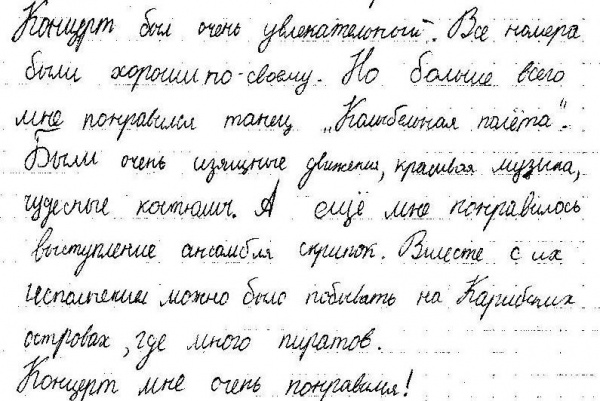 Концерт был очень увлекательный. Все номера
были хороши по-своему. Но больше всего
мне понравился танец „Колыбельная полёта“.
Были очень изящные движения, красивая музыка,
чудесные костюмы. А ещё мне понравилось
выступление ансамбля скрипок. Вместе с их
исполнением можно было побывать на Карибских
островах, где много пиратов.
Концерт мне очень понравился!